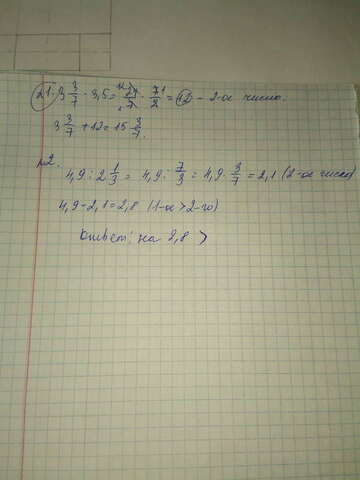 №1. 3 3/7 · 3,5 = 24/7 · 7/2 = 12 – 2-ое число.
3 3/7 + 12 = 15 3/7.
№2.
4,9 : 2 1/3 = 4,9 : 7/3 = 4,9 · 3/7 = 2,1 (2-ое число)
4,9 – 2,1 = 2,8 (1-ое > 2-го)
Ответ: на 2,8 >